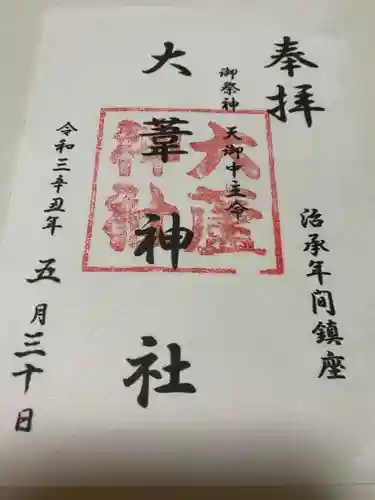 奉拝
治承年间鎮座
御祭神 天御中主命
大葦神社
大葦神社
令和三辛丑年 五月三十日